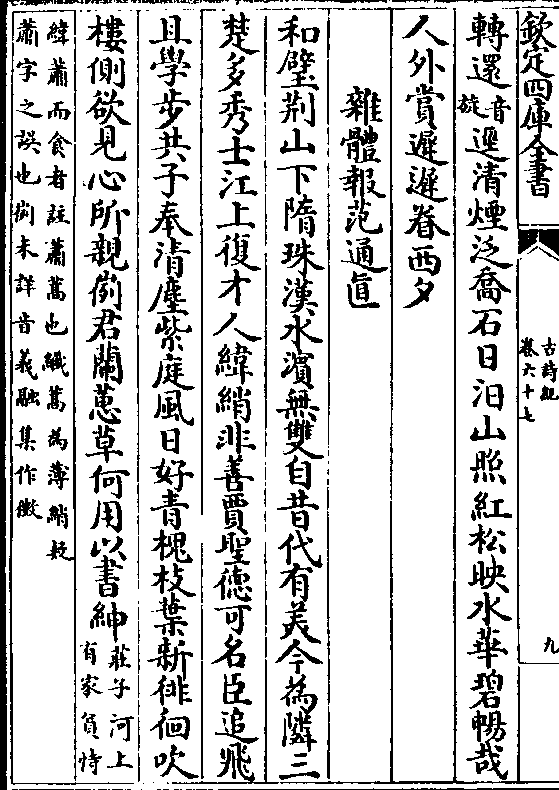 欽定四庫全書
古詩紀
卷六十七
九
轉還音旋遝清煙泛喬石日汨山照紅松映水華碧暢哉
人外賞遲遲眷西夕
雜體報范通直
和璧荆山下隋珠漢水濵無雙自昔代有美今為隣三
楚多秀士江上復才人緯綃非善賈聖徳可名臣追飛
且學步共子奉清塵紫庭風日好青槐枝葉新徘徊吹
樓側欲見心所親㓮君蘭蕙草何用以書紳莊子河上有家貧恃
緯蕭而食者註蕭蒿也織蒿為薄綃疑
蕭字之誤也㓮未詳音義融集作徴